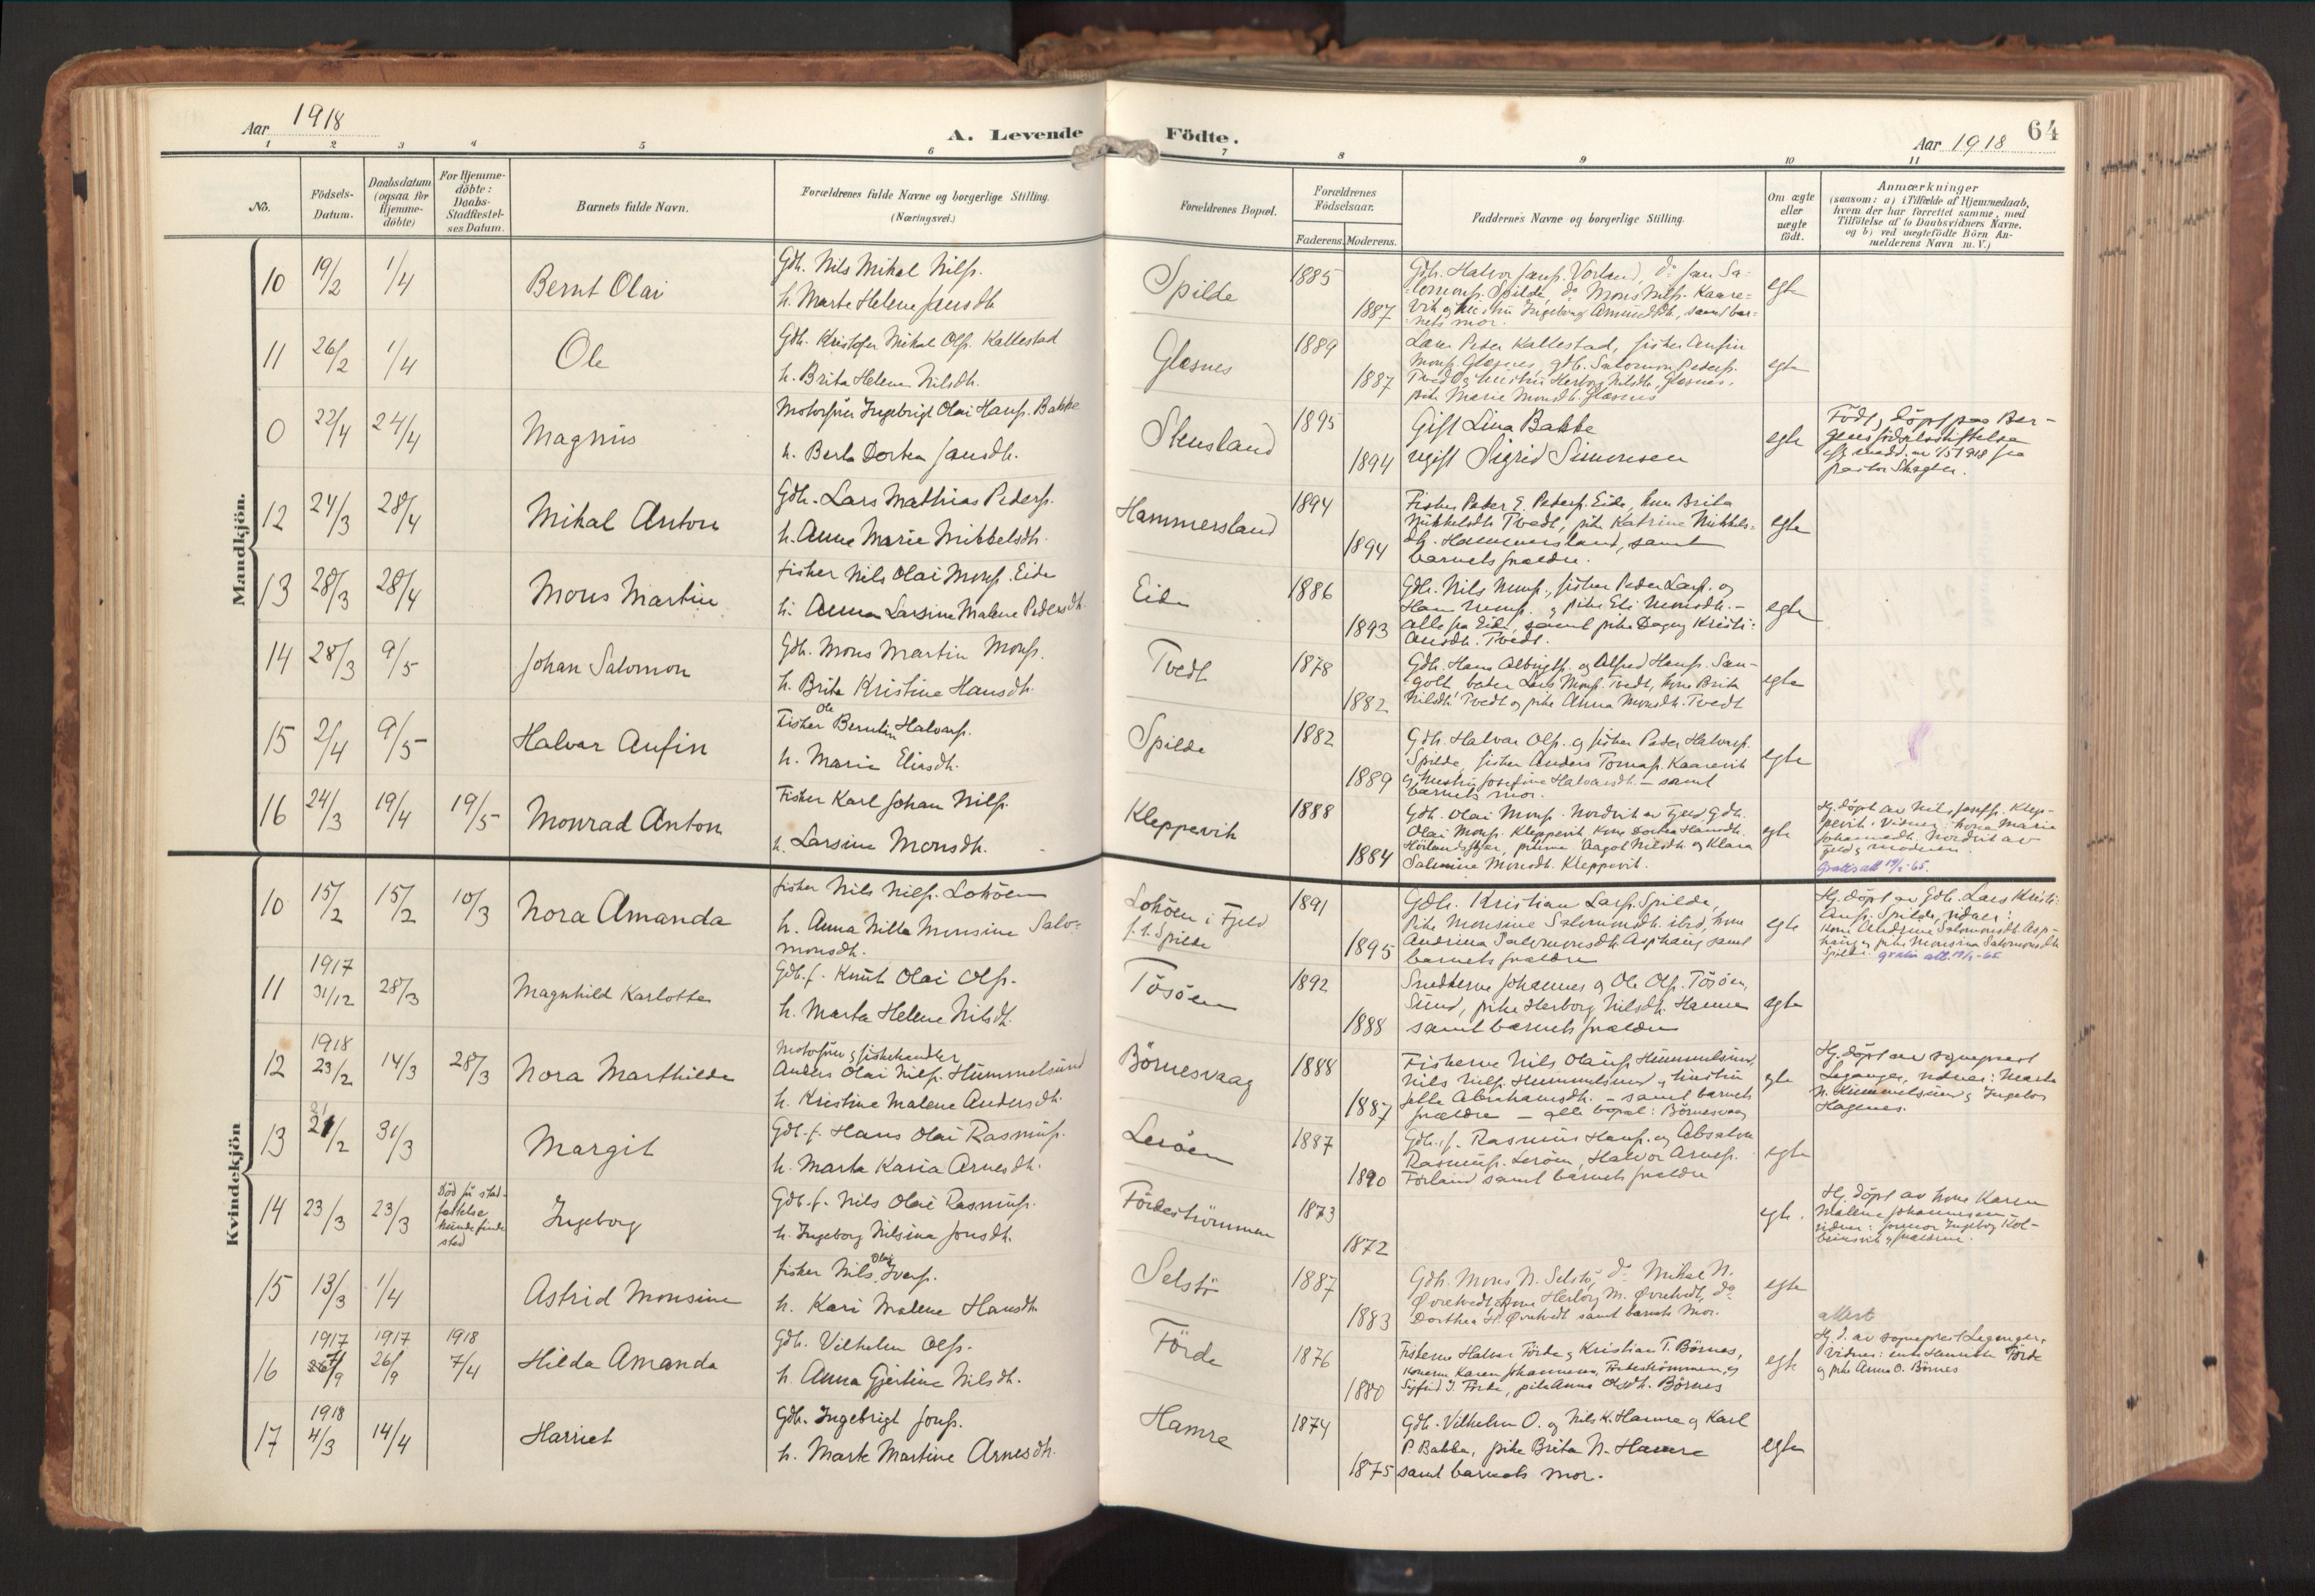 Aar 1918
A. Levende Födte.
Aar 1918
64
1 2 3 4 5 6 7 8 9 10 11
No.
Födsels-
Datum.
Daabsdatum
(ogsaa for
Hjemme-
döbte)
For Hjemme-
döbte:
Daabs-
Stadfæstel-
ses Datum.
Barnets fulde Navn.
Forældrenes fulde Navne og borgerlige Stilling.
(Næringsvei.)
Forældrenes Bopæl.
Forældrenes
Födselsaar.
Faderens. Moderens.
Faddernes Navne og borgerlige Stilling.
Om ægte
eller
uægte
födt.
Anmærkninger
(saasom: a) i Tilfælde af Hjemmedaab,
hvem der har forrettet samme, med
Tilföielse af to Daabsvidners Navne,
og b) ved uægtefödte Börn An-
melderens Navn m. V.)
Mandkjön.
10 19/2 1/4 Bernt Olai
Gdb. Nils Mikal Nilss.
h. Marte Helene Jansdh.
Spilde 1885 1887
Gdb. Halvor Vorland, do Jan Sa-
Spilde, do Mons Nilss. Kaare-
vik og hustru Ingeborg Amundsdh., samt bar-
nets mor.
egte
11 26/2 1/4 Ole
Gdb. Kristofer Mikal Olss. Kallestad
h. Brita Helene Nilsdh.
Glæsnes 1889 1887
Peter Kallestad, fisker Anfin
Monss. Glæsnes, gdb. Salomon Pederss.
Tvedt og hustru Herborg Nilsdh. Glæsnes,
pike Marie Monsdh. Glæsnes
egte
0 22/4 24/4 Magnus
Motorfører Ingebrigt Olai Hanss. Bakke
h. Berta Dortea Jansdh.
Stensland 1895 1894
Gift Lina Bakke
ugift Sigrid Simonsen
egte
Født og døpt paa Ber-
gens fødselsstiftelse
1/5 1918 fra
pastor
12 24/3 28/4 Mikal Anton
Gdb. Lars Mathias Pederss.
h. Anne Marie Mikkelsdh.
Hammersland 1894 1894
Fisker Peder E. Pederss. Eide, kone Brita
Mikkelsdh. Tvedt, pike Katrine Mikkels-
dh. Hammersland, samt
barnets forældre.
egte
13 28/3 28/4 Mons Martin
fisker Nils Olai Monss. Eide
h. Anna Larsine Malene Pedersdh.
Eide 1886 1893
Gdb. Nils Monss., fisker Peder Larss. og
Hans Monss. og pike Eli Monsdh. –
alle fra Eide, samt pike Dagny Kristi-
ansdh. Tvedt.
egte
14 28/3 9/5 Johan Salomon
Gdb. Mons Martin Monss.
h. Brite Kristine Hansdh.
Tvedt 1878 1882
Gdb. Hans Albrigts. og Alfred Hanss. San-
golt, Lars Monss. Tvedt, kone Brita
Nilsdh. Tvedt og pike Anna Monsdh. Tvedt
egte
15 2/4 9/5 Halvar Anfin
Ole
Fisker Berntin Halvorss.
h. Marie Eliasdh.
Spilde 1882 1889
Gdb. Halvar Olss. og fisker Peder Halvorss.
Spilde, fisker Anders Tomass. Kaarevik
og hustru Josefine Halvardsdh. – samt
barnets mor.
egte
16 24/3 19/4 19/5 Monrad Anton
Fisker Karl Johan Nilss.
h. Larsine Monsdh.
Kleppevik 1888 1884
Gdb. Olai Monss. Nordvik av Fjeld, Gdb.
Olai Monss. Kleppevik, kone Dortea Hansdh.
pikerne Aagot Nilsdh. og Klara
Salmine Monsdh. Kleppevik.
egte
Hj. døpt av Nils Josefss. Klep-
pevik. Vidner: kone Marie
Johannesdh. Nordvik av
Fjeld og moderen.
Gratis att 19/2-65.
Kvindekjön
10 15/2 15/2 10/3 Nora Amanda
fisker Nils Nilss. Lokøen
h. Anna Nilla Monsine Salo-
monsdh.
Lokøen i Fjeld
f. t. Spilde
1891 1895
Gdb. Kristian Larss. Spilde,
Pike Monsine Salomonsdh. ibid, kone
Andrina Salomonsdh. Asphaug samt
barnets forældre
egte
Hj. døpt av Gdb. Lars Kristi-
anss. Spilde, vidner:
kone Andrine Salomonsdh. Asp-
haug og pike Monsina Salomonsdh.
Spilde. gratis att. 19/2-65
11 1917 31/12 28/3 Magnhild Karlotte
Gdb.f. Knut Olai Olss.
h. Marta Helene Nilsdh.
Tösöen 1892 1888
Snedkerne Johannes og Ole Olss. Tösöen,
Sund, pike Herborg Nilsdh. Hamre
samt barnets forældre
egte
12 1918 23/2 14/3 28/3 Nora Marthilde
Motorfører og fiskehandler
Anders Olai Nilss. Hummelsund
h. Kristine Malene Andersdh.
Börnesvaag 1888 1887
Fiskerne Nils Olauss. Hummelsund,
Nils Nilss. Hummelsund og hustru
Abrahamsdh. – samt barnets
forældre – alle bopæl: Börnesvaag
egte
Hj. døpt av sogneprest
Leganger, vidner: Marta
N. Hummelsund og Ingebor
Hagenes.
13 21/2 31/3 Margit
Gdb.f. Hans Olai Rasmuss.
h. Marta Karia Arnesdh.
Leröen 1887 1890
Gdb.f. Rasmus Hanss. og Absalon
Rasmuss. Leröen, Halvor Arness.
Förland samt barnets forældre
egte
14 23/3 23/3
Död før stad-
fæstelse
kunde finde
sted
Ingeborg
Gdb.f. Nils Olai Rasmuss.
h. Ingeborg Nilsina Jonsdh.
Fördeströmmen 1873 1872
egte.
Hj. døpt av kone Karen
Malene Johannesen
vidner: jormor Ingeborg Kol-
beinsvik og forældrene.
15 13/3 1/4 Astrid Monsine
Olai
fisker Nils Iverss.
h. Kari Malene Hansdh.
Selstö 1887 1883
Gdb. Mons N. Selstö, do Mikal N.
Øvretvedt, kone Herborg M. Øvretvedt, do
Dorthea H. Øvretvedt samt barnets mor.
egte
16 1917 7/9 1917 26/9 1918 7/4 Hilda Amanda
Gdb. Vilhelm Olss.
h. Anna Gjertine Nilsdh.
Förde 1876 1880
Fiskerne Halvor Förde og Kristian T. Börnes,
konerne Karen Johannesen, Fördeströmmen, og
Sigfrid J. Förde, pike Anna Olsdh. Börnes
egte
attest
Hj. d. av sogneprest Leganger,
Vidner: enke Henrikke Förde
og pike Anna O. Börnes
17 1918 4/3 14/4 Harriet
Gdb. Ingebrigt Jonss.
h. Marte Martine Arnesdh.
Hamre 1874 1875
Gdb. Vilhelm O. og Nils K. Hamre og Karl
P. Bakke, pike Brita N. Hamre
samt barnets mor.
egte